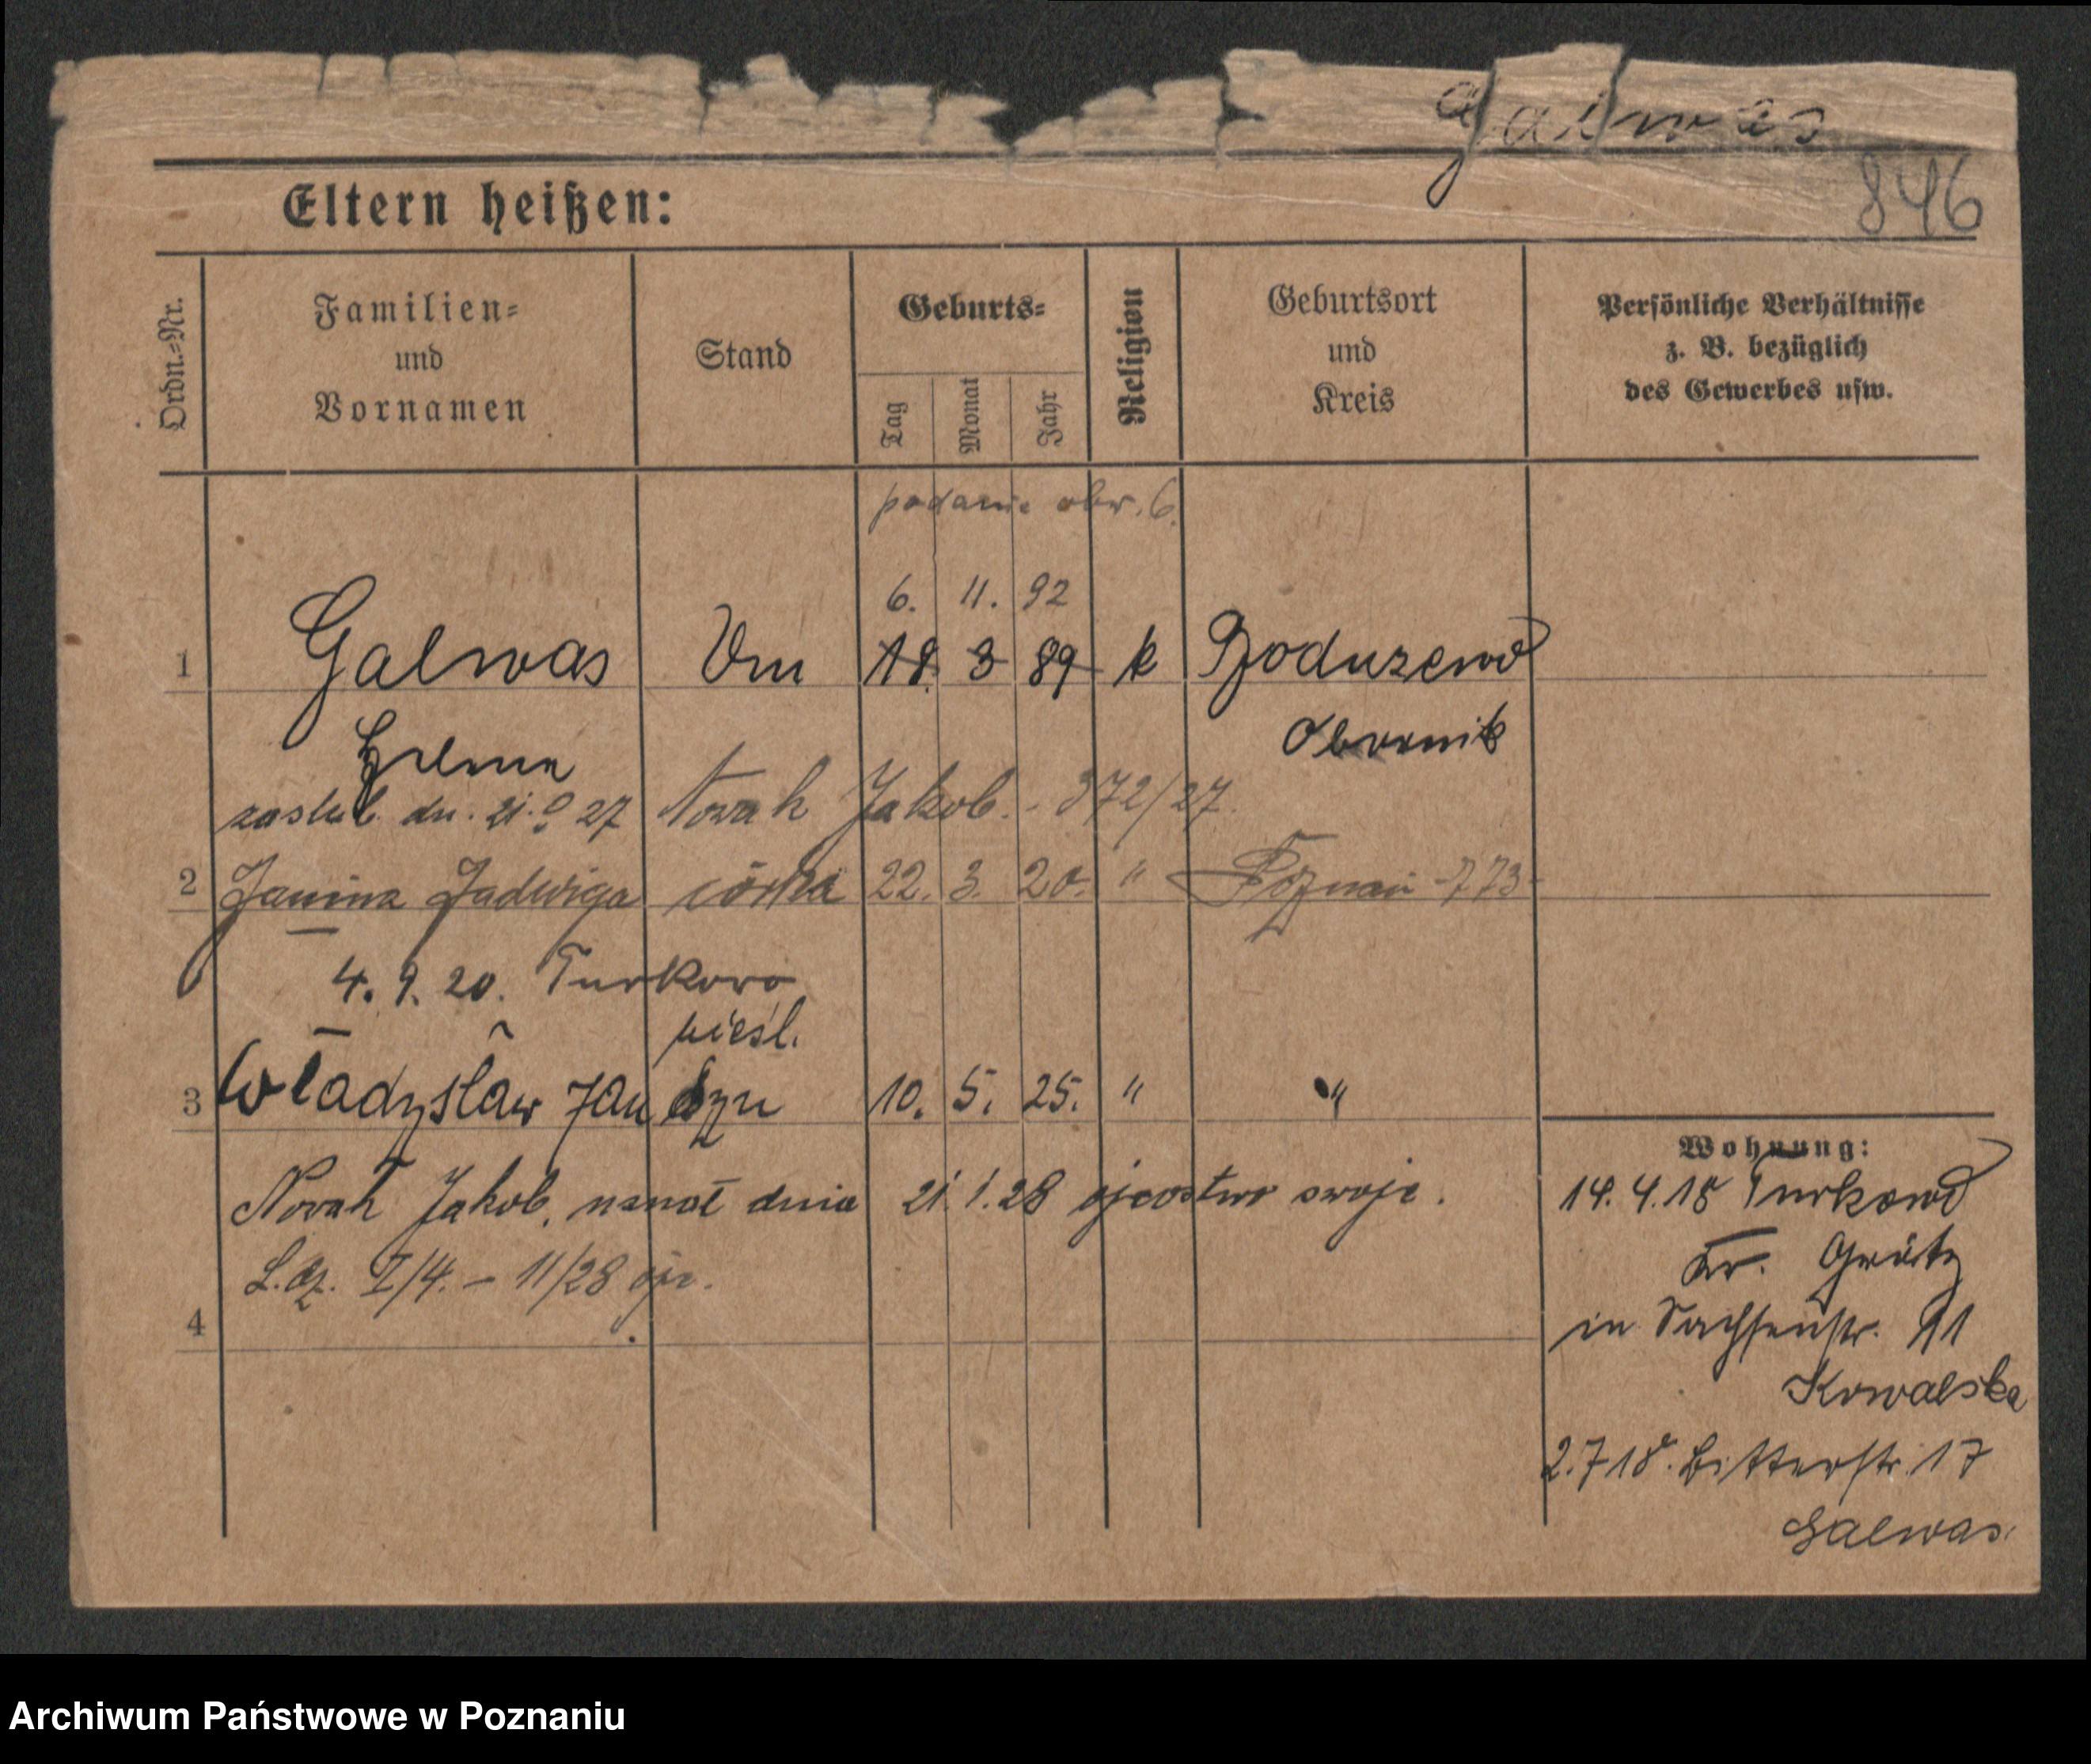 Galwas
846
Eltern heißen:
Ordn.=Nr.
Familien=
und
Vornamen
Stand
Geburts=
Tag
Monat
Jahr
Religion
Geburtsort
und
Kreis
Persönliche Verhältnisse
z. B. bezüglich
des Gewerbes usw.
podanie obw. 6.
6. 11. 92
1 Galwas 18. 3 89 k
Obornik
zaslub. dn. 21. 27 Novak Jakob. - 372/27.
2 Janina Jadwiga córka 22. 3. 20. " Poznań 773
4. 9. 20. Turkowo
nieśl.
3 Władysław Jan Syn 10. 5. 25. " "
Novak Jakob, uznał dnia 21.1.28 ojcostwo swoje.
L.dz. I/4. - 11/28 ojc.
4
Wohnung:
14.4.18 Turkowo
Kr. Grätz
in Sachsenstr. 11
Kowalska
2.7 18. Bitterstr. 17
Galwas.
Archiwum Państwowe w Poznaniu